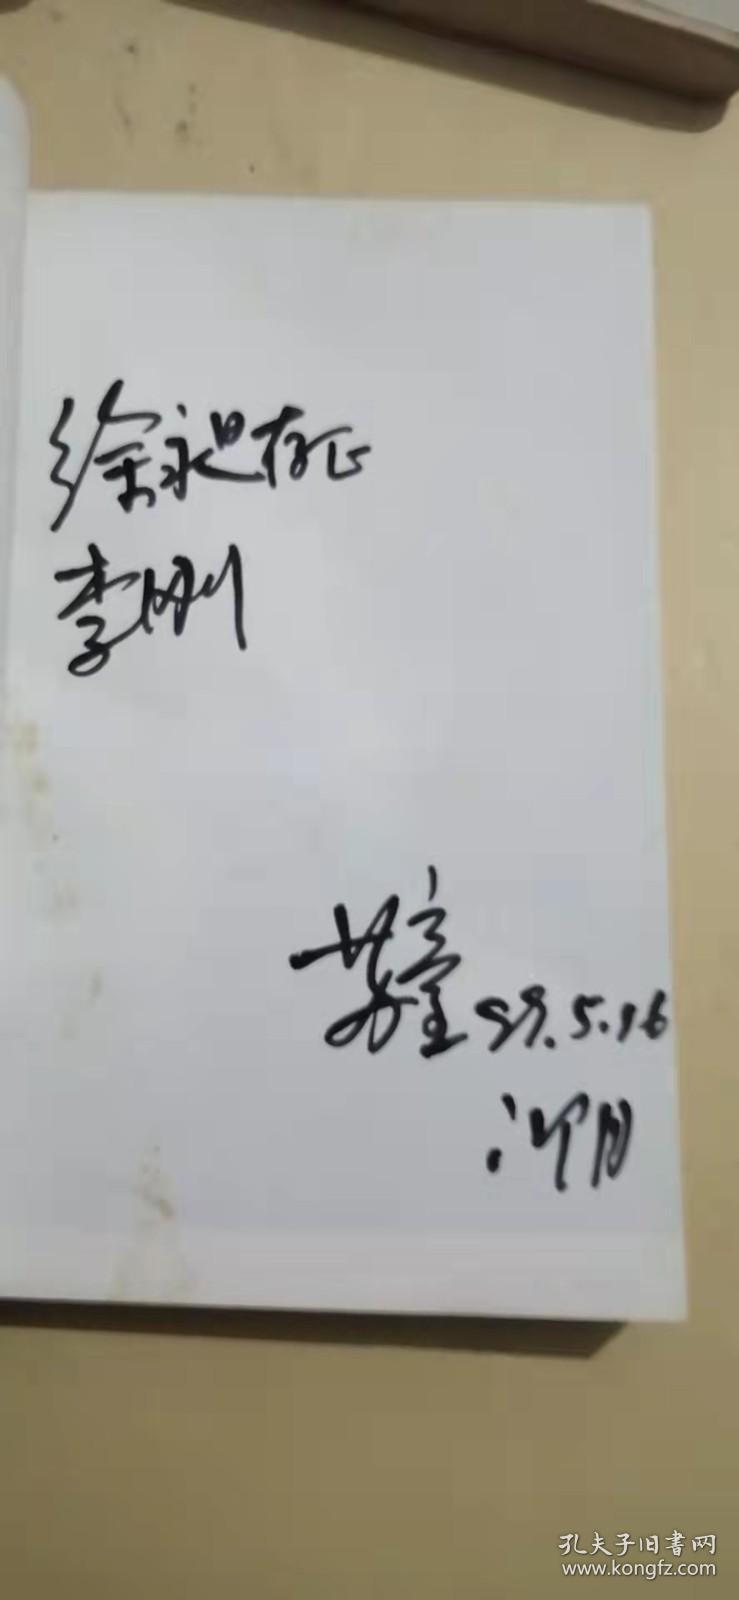 徐永昶存正
李刚
苏童 99.5.16
孔夫子旧書网
www.kongfz.com